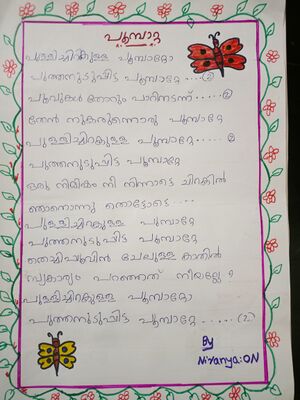 പൂമ്പാറ്റ
പുള്ളിച്ചിറകുള്ള പൂമ്പാറ്റേ
പുത്തനുടുപ്പിട്ട പൂമ്പാറ്റേ ...②
പൂവുകൾ തോറും പാറിനടന്ന് .....②
തേൻ നുകരുന്നൊരു പൂമ്പാറ്റേ
പുള്ളിച്ചിറകുള്ള പൂമ്പാറ്റേ.....②
പുത്തനുടുപ്പിട്ട പൂമ്പാറ്റേ
ഒരു നിമിഷം നീ നിന്നാടെ ചിറകിൽ
ഞാനൊന്നു തൊട്ടോട്ടെ....
പുള്ളിച്ചിറകുള്ള പൂമ്പാറ്റേ
പുത്തനുടുപ്പിട്ട പൂമ്പാറ്റേ
തെച്ചിപ്പൂവിൻ ചേലുള്ള കാതിൽ
സ്വകാര്യം പറഞ്ഞത് നീയല്ലേ ?
പുള്ളിച്ചിറകുള്ള പൂമ്പാറ്റേ
പുത്തനുടുപ്പിട്ട പൂമ്പാറ്റേ .....(2)
By
Niranya:ON